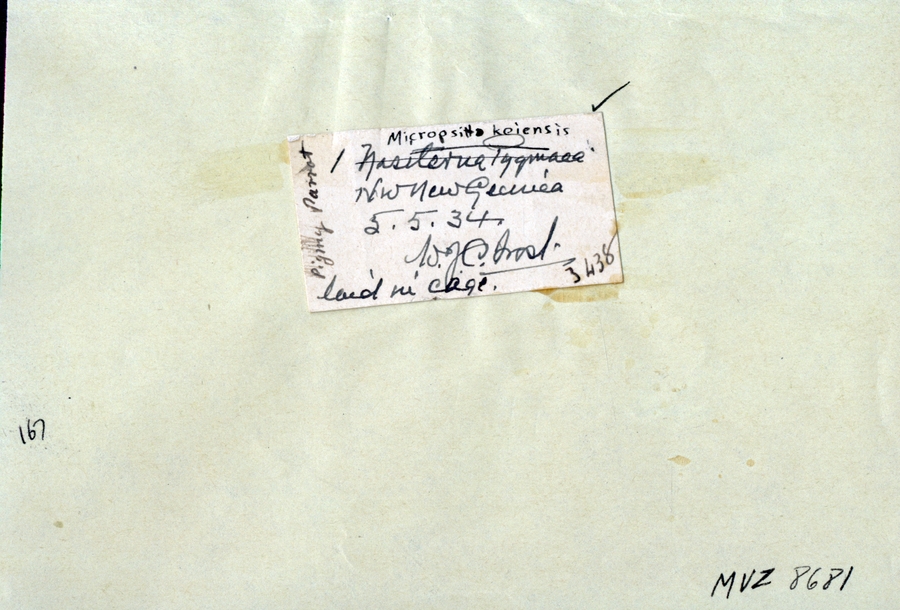 Micropsitta keiensis
1 Nasiterna Pygmaea
NW New Guinea
5. 5. 34.
W.J.C. Frost.
3438
laid in cage.
Pigmy Parrot
167
MVZ 8681